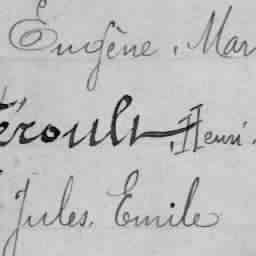 Eugène, Mar
éroult, Henri.
Jules. Emile